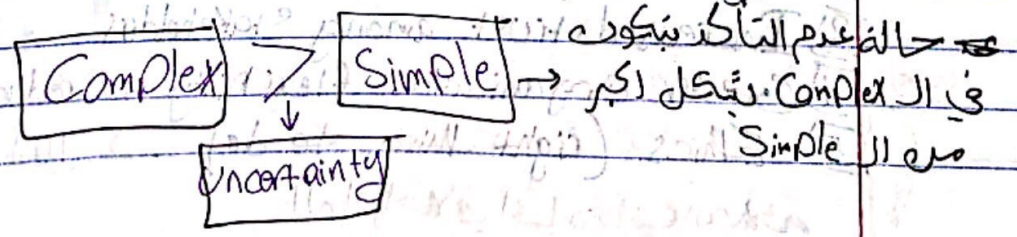 Complex > Simple → حالة عدم التأكد بتكون
في ال Complex بشكل اكبر
من ال Simple
↓
Uncertainty